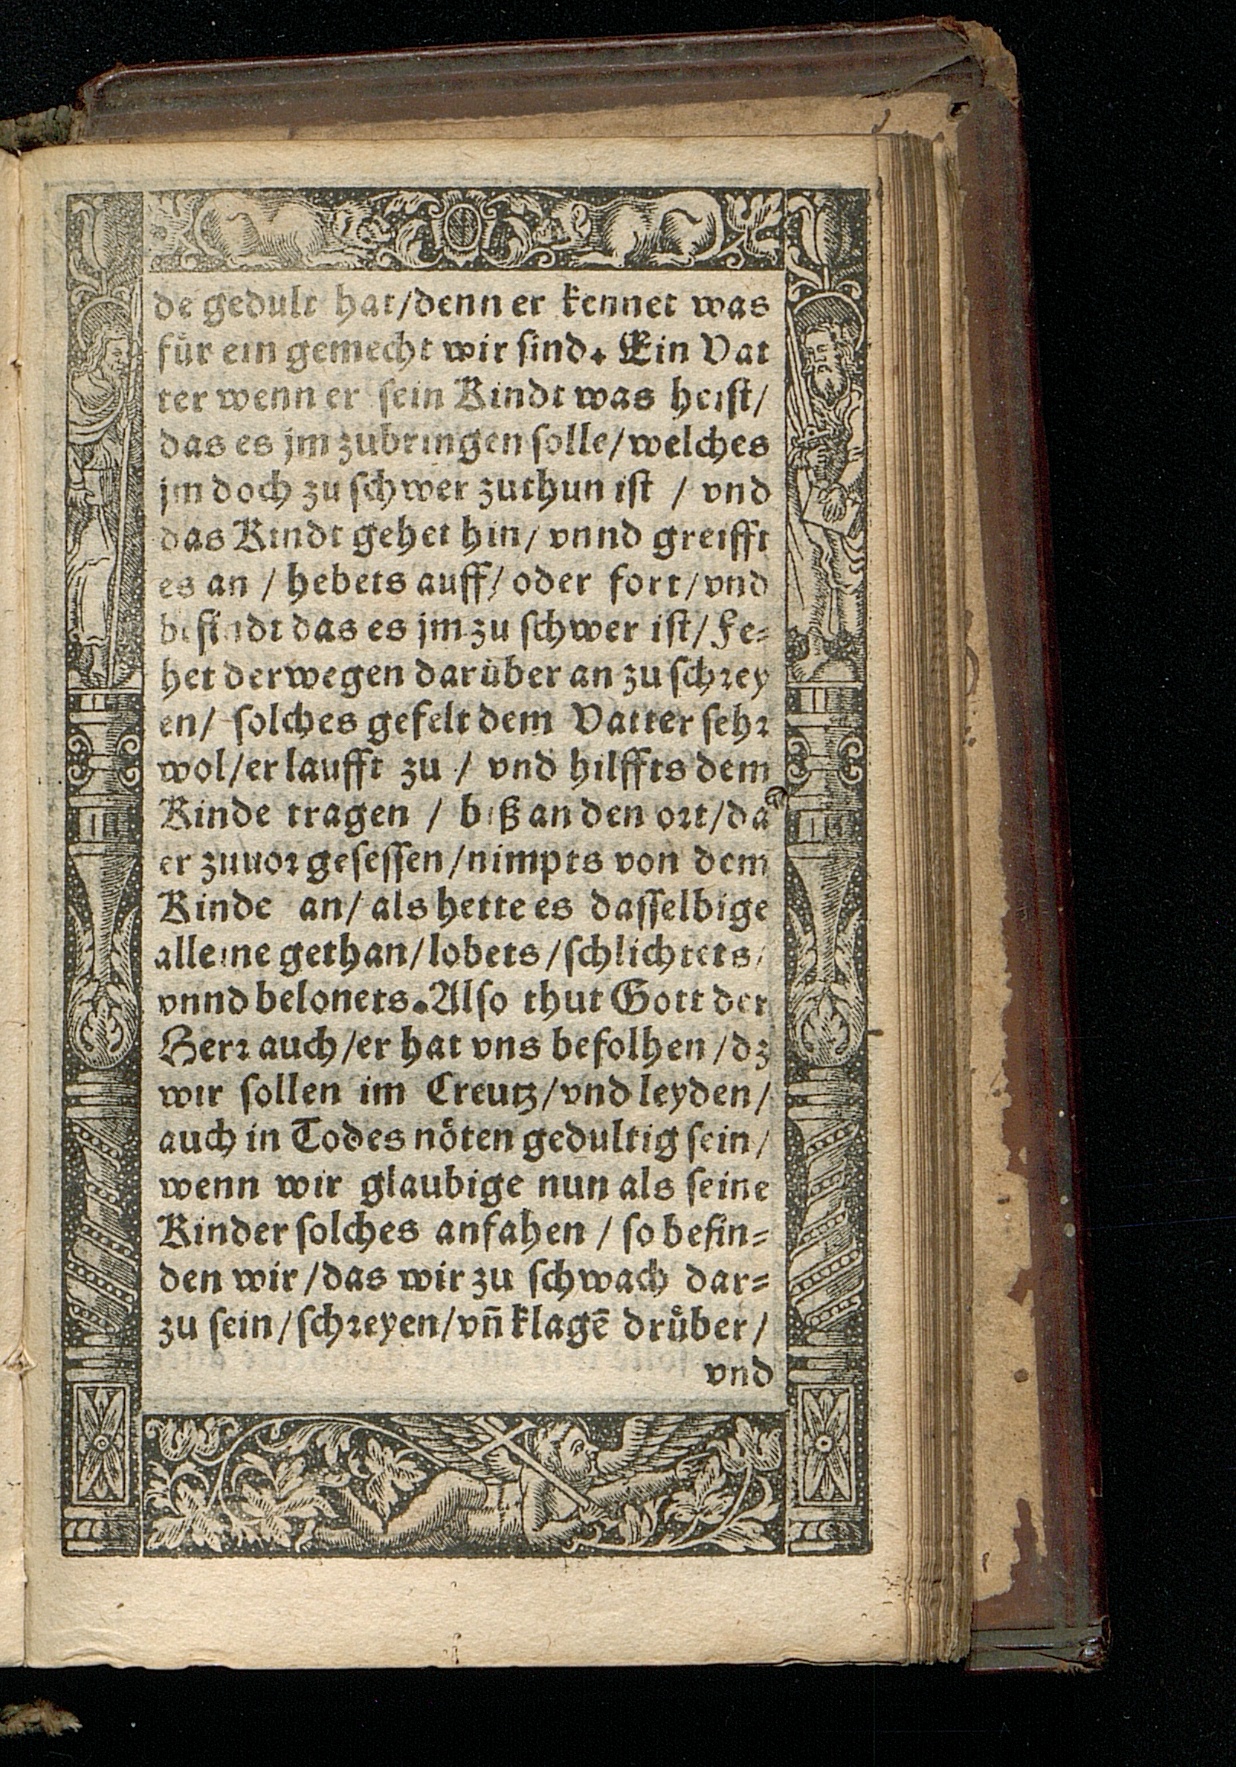 de gedult hat/denn er kennet was
für ein gemecht wir sind. Ein Vat
ter wenn er sein Kindt was heist/
das es jm zubringen solle/welches
jm doch zu schwer zuthun ist / vnd
das Kindt gehet hin/ vnnd greifft
es an / hebets auff/ oder fort/vnd
befindt das es jm zu schwer ist/ Fe-
het derwegen darüber an zu schrey
en/ solches gefelt dem Vatter sehr
wol/er laufft zu / vnd hilffts dem
Kinde tragen / biß an den ort/da
er zuuor gesessen/nimpts von dem
Kinde an/ als hette es dasselbige
alleine gethan/lobets/schlichtets/
vnnd belonets. Also thut Gott der
Herr auch/er hat vns befolhen/dz
wir sollen im Creutz/vnd leyden/
auch in Todes nöten gedultig sein/
wenn wir glaubige nun als seine
Kinder solches anfahen / so befin-
den wir/das wir zu schwach dar-
zu sein/schreyen/vñ klagē drüber/
vnd